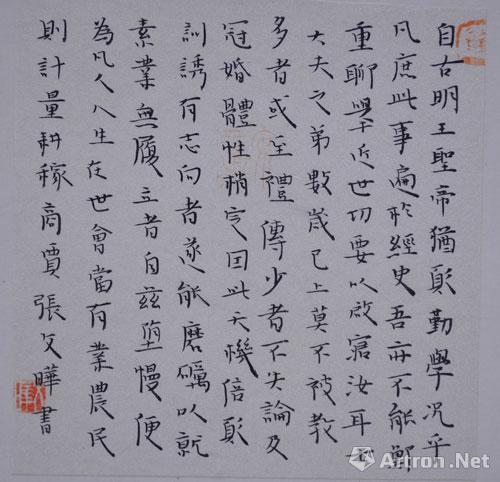 自古明王聖帝猶須勤學況乎
凡庶此事遍於經史吾亦不能鄭
重聊舉近世切要以啟寤汝耳士
大夫之弟數歲已上莫不被教
多者或至禮傳少者不失論及
冠婚體性稍定因此天機倍須
訓誘有志向者遂能磨礪以就
素業無履立者自茲墮慢便
為凡人人生在世會當有業農民
則計量耕稼商賈張文曄書
Artron.Net